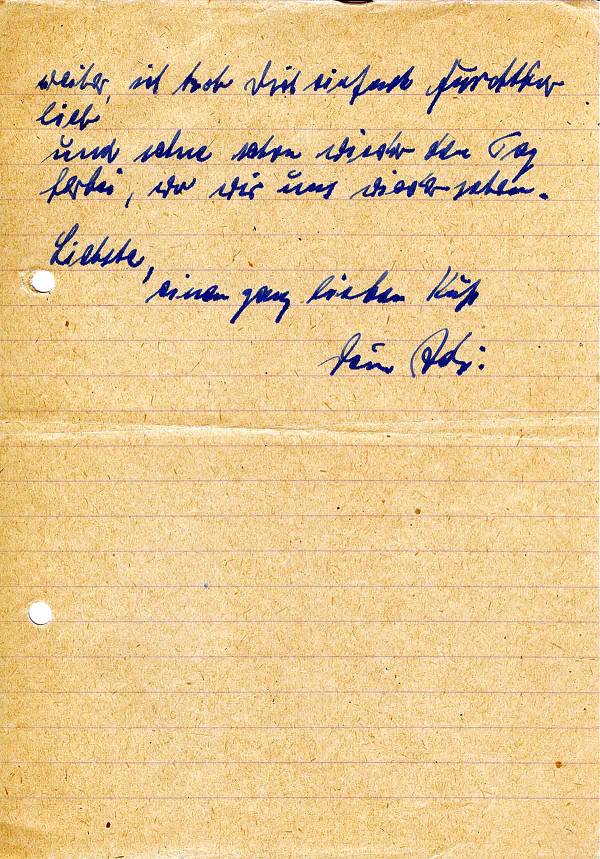 weiter, ich hab Dich einfach furchtbar
lieb
und sehne schon wieder den Tag
herbei, wo wir uns wiedersehen.
Liebste,
einen ganz lieben Kuß
Dein